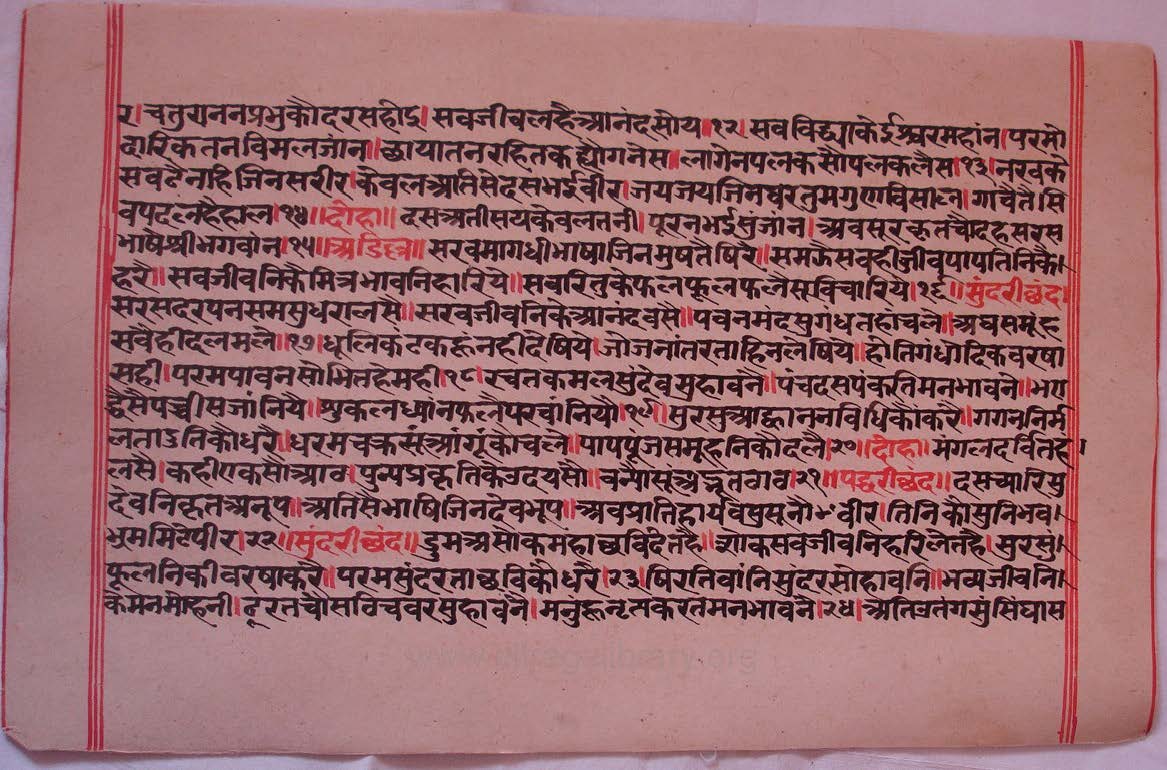 र।चतुराननप्रभुकौदरसहीदु।सवजीवलहैआनंदसोय॥१२।सवविद्याकेईश्वरमहांन।परमौ
दारिकतनविमलजांन॥छायातनरहितकह्यौगनेस॥लागेनपलकसौपलकलैस॥१३।नखके
सवटैनाहिजिनसरीर।केवलअतिसेदसभईवीर।जयजयजिनवरतुमगुणविसाल।गावैतैसि
वपदलहैहाल।१४॥दोहा॥दसअतीसयकेवलतनी।पूरनभईसुजांन।अवसुरकृतचौदहसरस
भाषैश्रीभगवांन।१५॥अडिल्ल॥सरवमागधीभाषाजिनमुषतैषिरै॥समझैसवहीजीवपापतिनिकै।
हरै॥सवजीवनिकैमित्रभावनिहारिये॥सवरितुकेफलफूलफलैसुविचारिये।१६॥सुंदरीछंद।
सरसदरपनसमसुधरालसै॥सरवजीवनिकेआनंदवसै॥पवनमंदसुगंधतहांचलै॥अघसमूह
सवैहीदलमलै॥१७।धूलिकंटकहूनहीदेषिये।जोजनांतरताहिनलेषिये॥होतिगंधोदिकवरषा
सही।परमपावनसोभितहैमही।१८।रचतकमलसुदेवसुहावनै॥पंचदसपंकतिमनभावनै॥भए
द्वैसैपच्चीसजांनियै॥सुकलध्यांनफलैपरवांनियौ।१९॥सुरसुआह्वाननविधिकौकरै॥गगननिर्म
लताऽतिकौधरै।धरमचक्रसुंआंगूंकोचलै॥पापपूंजसमूहनिकौदलै।२०॥दोहा॥मंगलदर्वितह।
लसै।कहीएकसौआव।पुन्यप्रकृतिकैउदयसौ॥चन्यौसुंअद्भूतवाव।२१॥पद्धरीछंद॥दसच्यारिसु
देवनिकृतअनूप॥अतिसैभाषिजिनदेवभूप॥अवप्रातिहार्यवसुसूनौवीर।तिनिकौसुनिभव।
भ्रममिटेपीर।२२॥सुंदरीछंद॥द्रुमअसोकमहाछविदेतहै॥शोकसवजीवनिहरिलेतहै।सुरसु।
फूलनिकीवरषाकरै॥परमसुंदरताछविकौधरै।२३॥षिरतिवांनिसुंदरसोहावनि॥भव्यजीवनि।
केमनमोहनी।दूरतचौसविचवरसुहावनै।मनुंहूनृत्यकरतमनभावनै।२४।अतिउतंगसुसिंघास
www.jaingranthlibrary.org